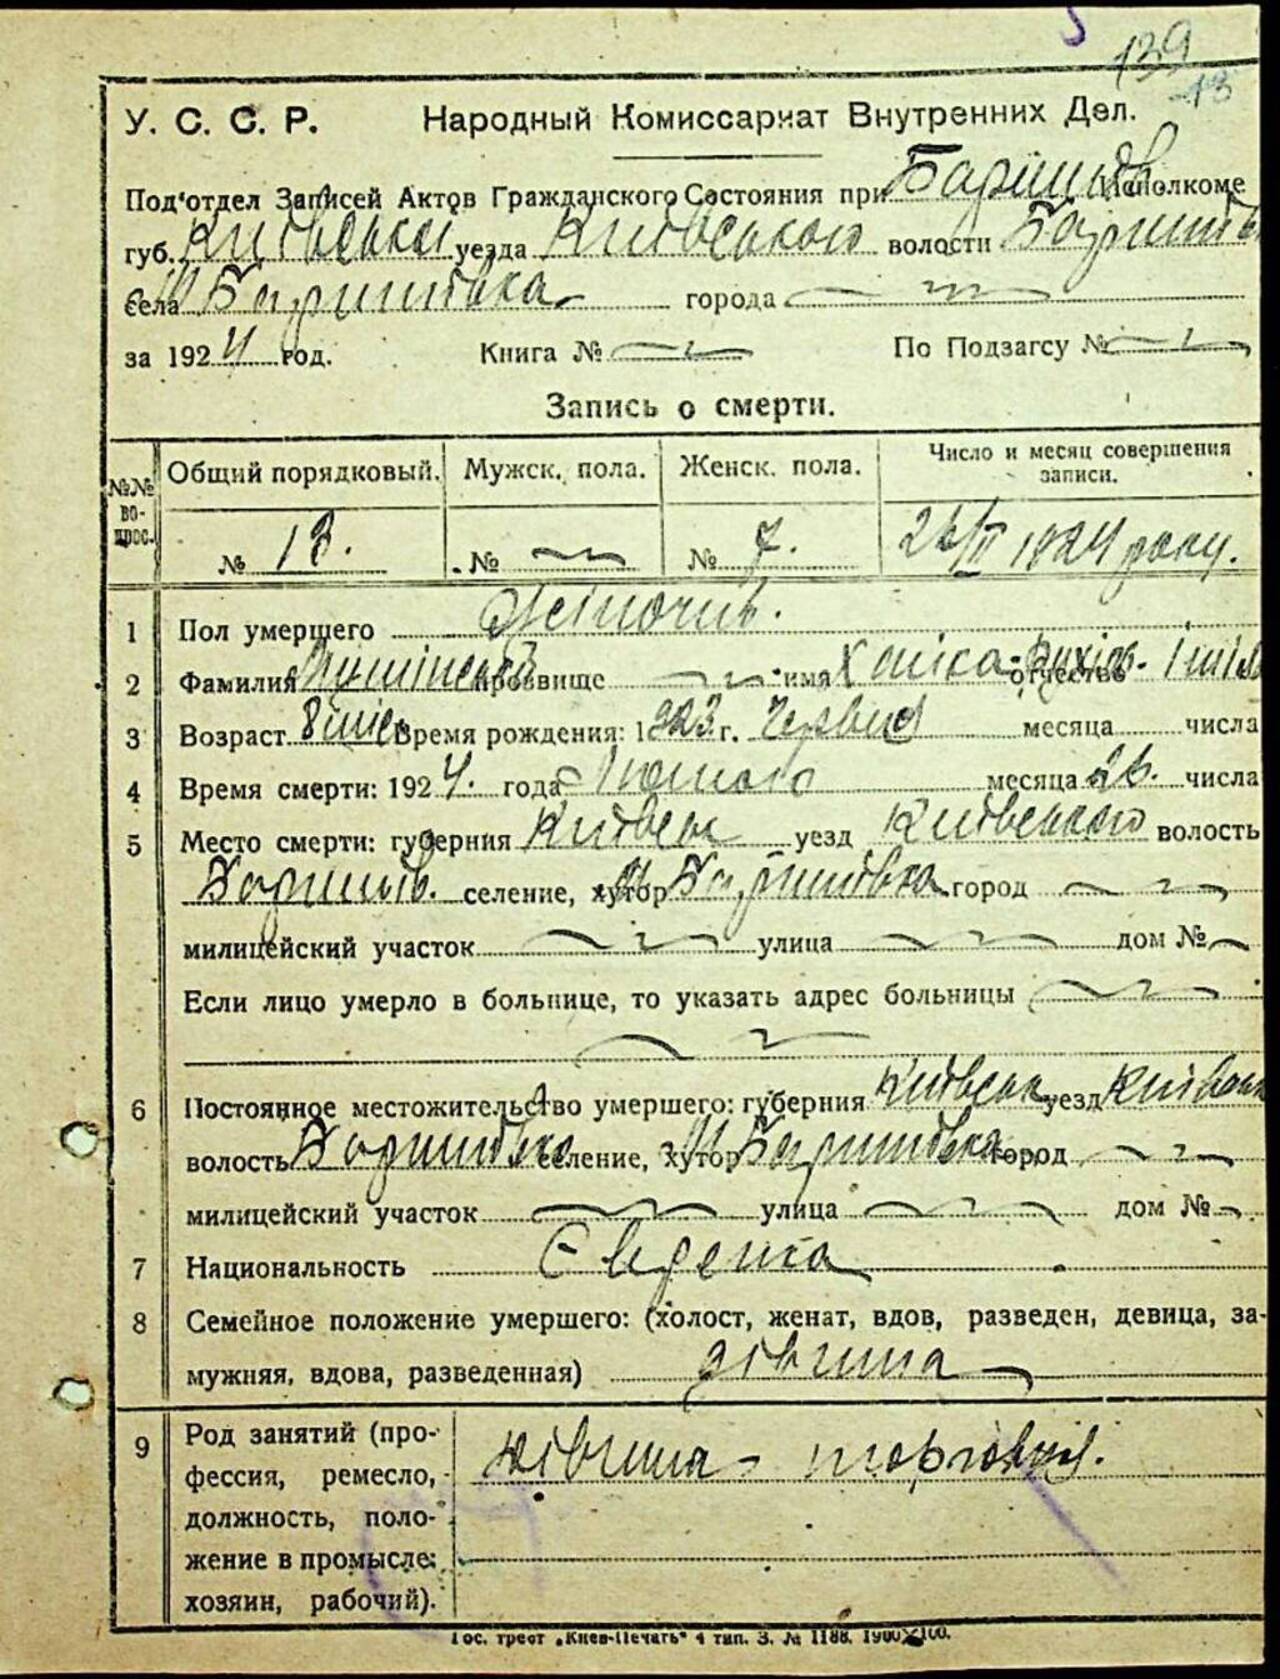 139
13
У. С. С. Р. Народный Комиссариат Внутренних Дел.
Под'отдел Записей Актов Гражданского Состояния при Баришів Исполкоме
губ. Київської уезда Київського волости Баришів
села М Баришівка города
за 1924 год. Книга № По Подзагсу №
Запись о смерти.
№№ вопрос. Общий порядковый. Мужск. пола. Женск. пола. Число и месяц совершения записи.
№ 13. № № 7. 26/II 1924 року.
1 Пол умершего Жіночив.
2 Фамилия прозвище имя Хайка отчество
3 Возраст 8 міс Время рождения: 1923 г. Червня месяца числа
4 Время смерти: 1924. года Лютого месяца 26. числа
5 Место смерти: губерния Київськ уезд Київського волость
Баришів. селение, хутор М Баришівка город
милицейский участок улица дом №
Если лицо умерло в больнице, то указать адрес больницы
6 Постоянное местожительство умершего: губерния Київськ уезд Київськ
волость Баришівка селение, хутор М Баришівка город
милицейский участок улица дом №
7 Национальность Єврейка
8 Семейное положение умершего: (холост, женат, вдов, разведен, девица, за-
мужняя, вдова, разведенная) дівчина
9 Род занятий (про-
фессия, ремесло,
должность, поло-
жение в промысле:
хозяин, рабочий).
Гос. трест „Киев-Печать" 4 тип. З. № 1188. 1900×100.